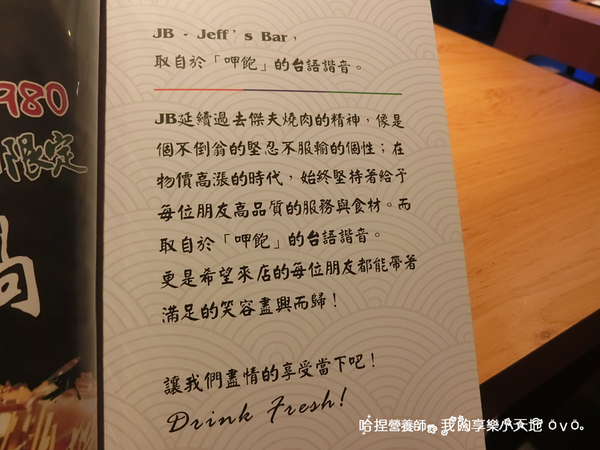 980
限定
鍋
JB - Jeff's Bar，
取自於「呷飽」的台語諧音。
JB延續過去傑夫燒肉的精神，像是
個不倒翁的堅忍不服輸的個性；在
物價高漲的時代，始終堅持著給予
每位朋友高品質的服務與食材。而
取自於「呷飽」的台語諧音。
更是希望來店的每位朋友都能帶著
滿足的笑容盡興而歸！
讓我們盡情的享受當下吧！
Drink Fresh!
哈捏營養師。我的享樂小天地 ovo。